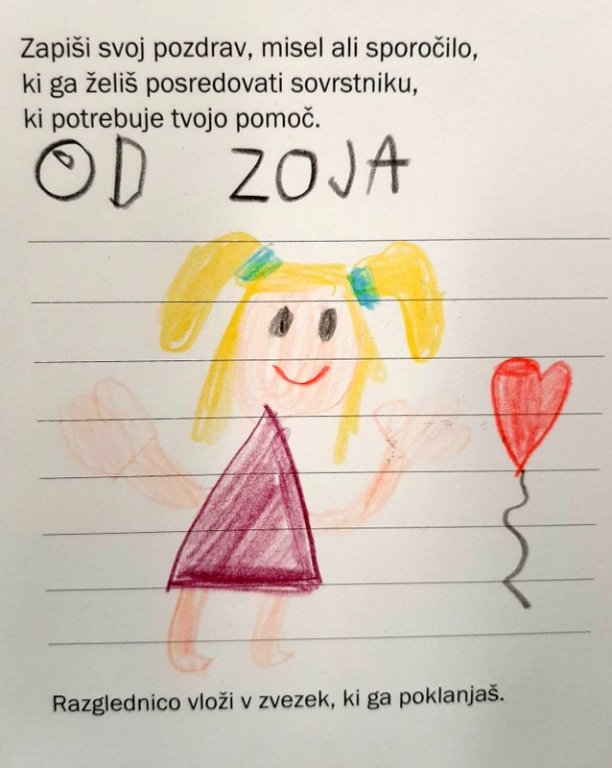 Zapiši svoj pozdrav, misel ali sporočilo,
ki ga želiš posredovati sovrstniku,
ki potrebuje tvojo pomoč.
OD ZOJA
Razglednico vloži v zvezek, ki ga poklanjaš.